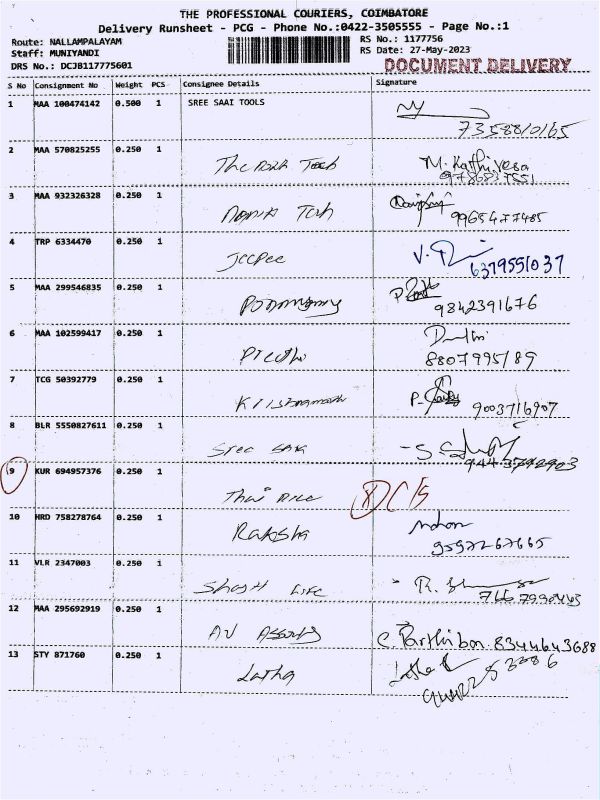 THE PROFESSIONAL COURIERS, COIMBATORE
Delivery Runsheet - PCG - Phone No.:0422-3505555 - Page No.:1
Route: NALLAMPALAYAM
RS No.: 1177756
Staff: MUNIYANDI
RS Date: 27-May-2023
DRS No.: DCJB117775601
DOCUMENT DELIVERY
S No Consignment No Weight PCS Consignee Details Signature
1 MAA 100474142 0.500 1 SREE SAAI TOOLS
7358810165
2 MAA 570825255 0.250 1
M. Kathivesa
3 MAA 932326328 0.250 1
9965477485
4 TRP 6334470 0.250 1 Jccpee
6379551037
5 MAA 299546835 0.250 1
9842391676
6 MAA 102599417 0.250 1 Preethi
8807995189
7 TCG 50392779 0.250 1
9003716907
8 BLR 5550827611 0.250 1 Sree
9 KUR 694957376 0.250 1 Thai Rice
10 HRD 758278764 0.250 1 Raksha
9597267665
11 VLR 2347003 0.250 1 Life
12 MAA 295692919 0.250 1 AV
C. Parthiban 8344643688
13 STY 871760 0.250 1 Latha